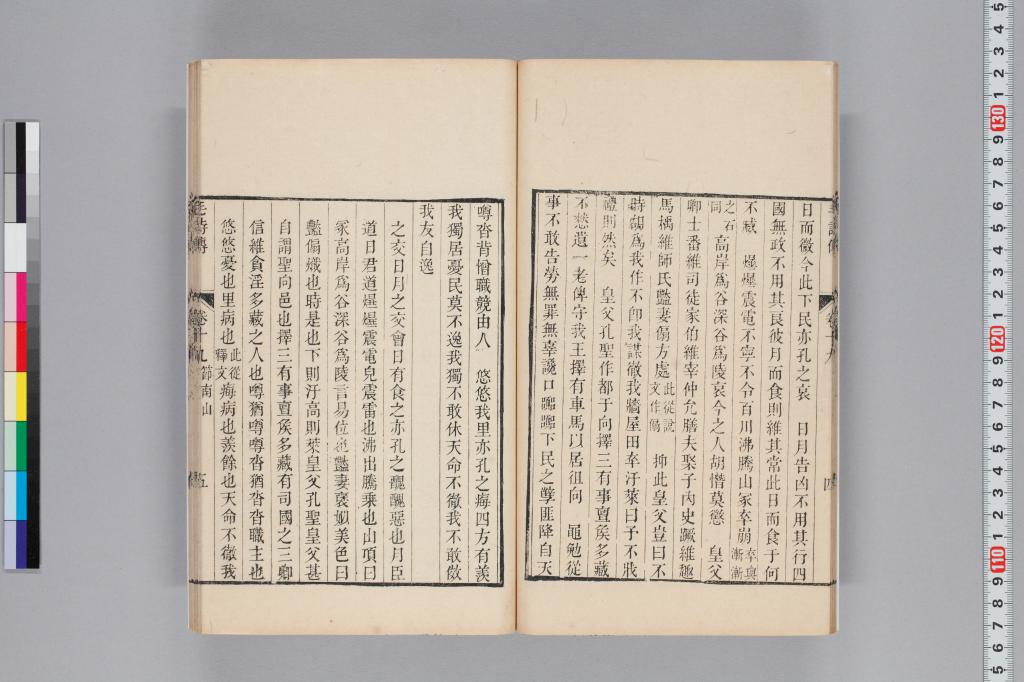 日而微今此下民亦孔之哀　日月告凶不用其行四
國無政不用其良彼月而食則維其常此日而食于何
不臧　爗爗震電不寧不令百川沸騰山冢卒崩卒與漸漸
之石同高岸爲谷深谷爲陵哀今之人胡憯莫懲　皇父
卿士番維司徒家伯維宰仲允膳夫棸子內史蹶維趣
馬楀維師氏豔妻傓方處此從說文作傓　抑此皇父豈曰不
時胡爲我作不卽我謀徹我牆屋田卒汙萊曰予不戕
禮則然矣　皇父孔聖作都于向擇三有事亶矦多藏
不憖遺一老俾守我王擇有車馬以居徂向　黽勉從
事不敢告勞無罪無辜讒口嚻嚻下民之孼匪降自天
噂沓背憎職競由人　悠悠我里亦孔之痗四方有羨
我獨居憂民莫不逸我獨不敢休天命不徹我不敢傚
我友自逸
之交日月之交會日有食之亦孔之醜醜惡也月臣
道日君道爗爗震電皃震雷也沸出騰乘也山頂曰
冢高岸爲谷深谷爲陵言易位也豔妻襃姒美色曰
豔傓熾也時是也下則汙高則萊皇父孔聖皇父甚
自謂聖向邑也擇三有事亶矦多藏有司國之三卿
信維貪淫多藏之人也噂猶噂噂沓猶沓沓職主也
悠悠憂也里病也此從釋文痗病也羨餘也天命不徹我
毛詩傳　卷十九　節南山　五